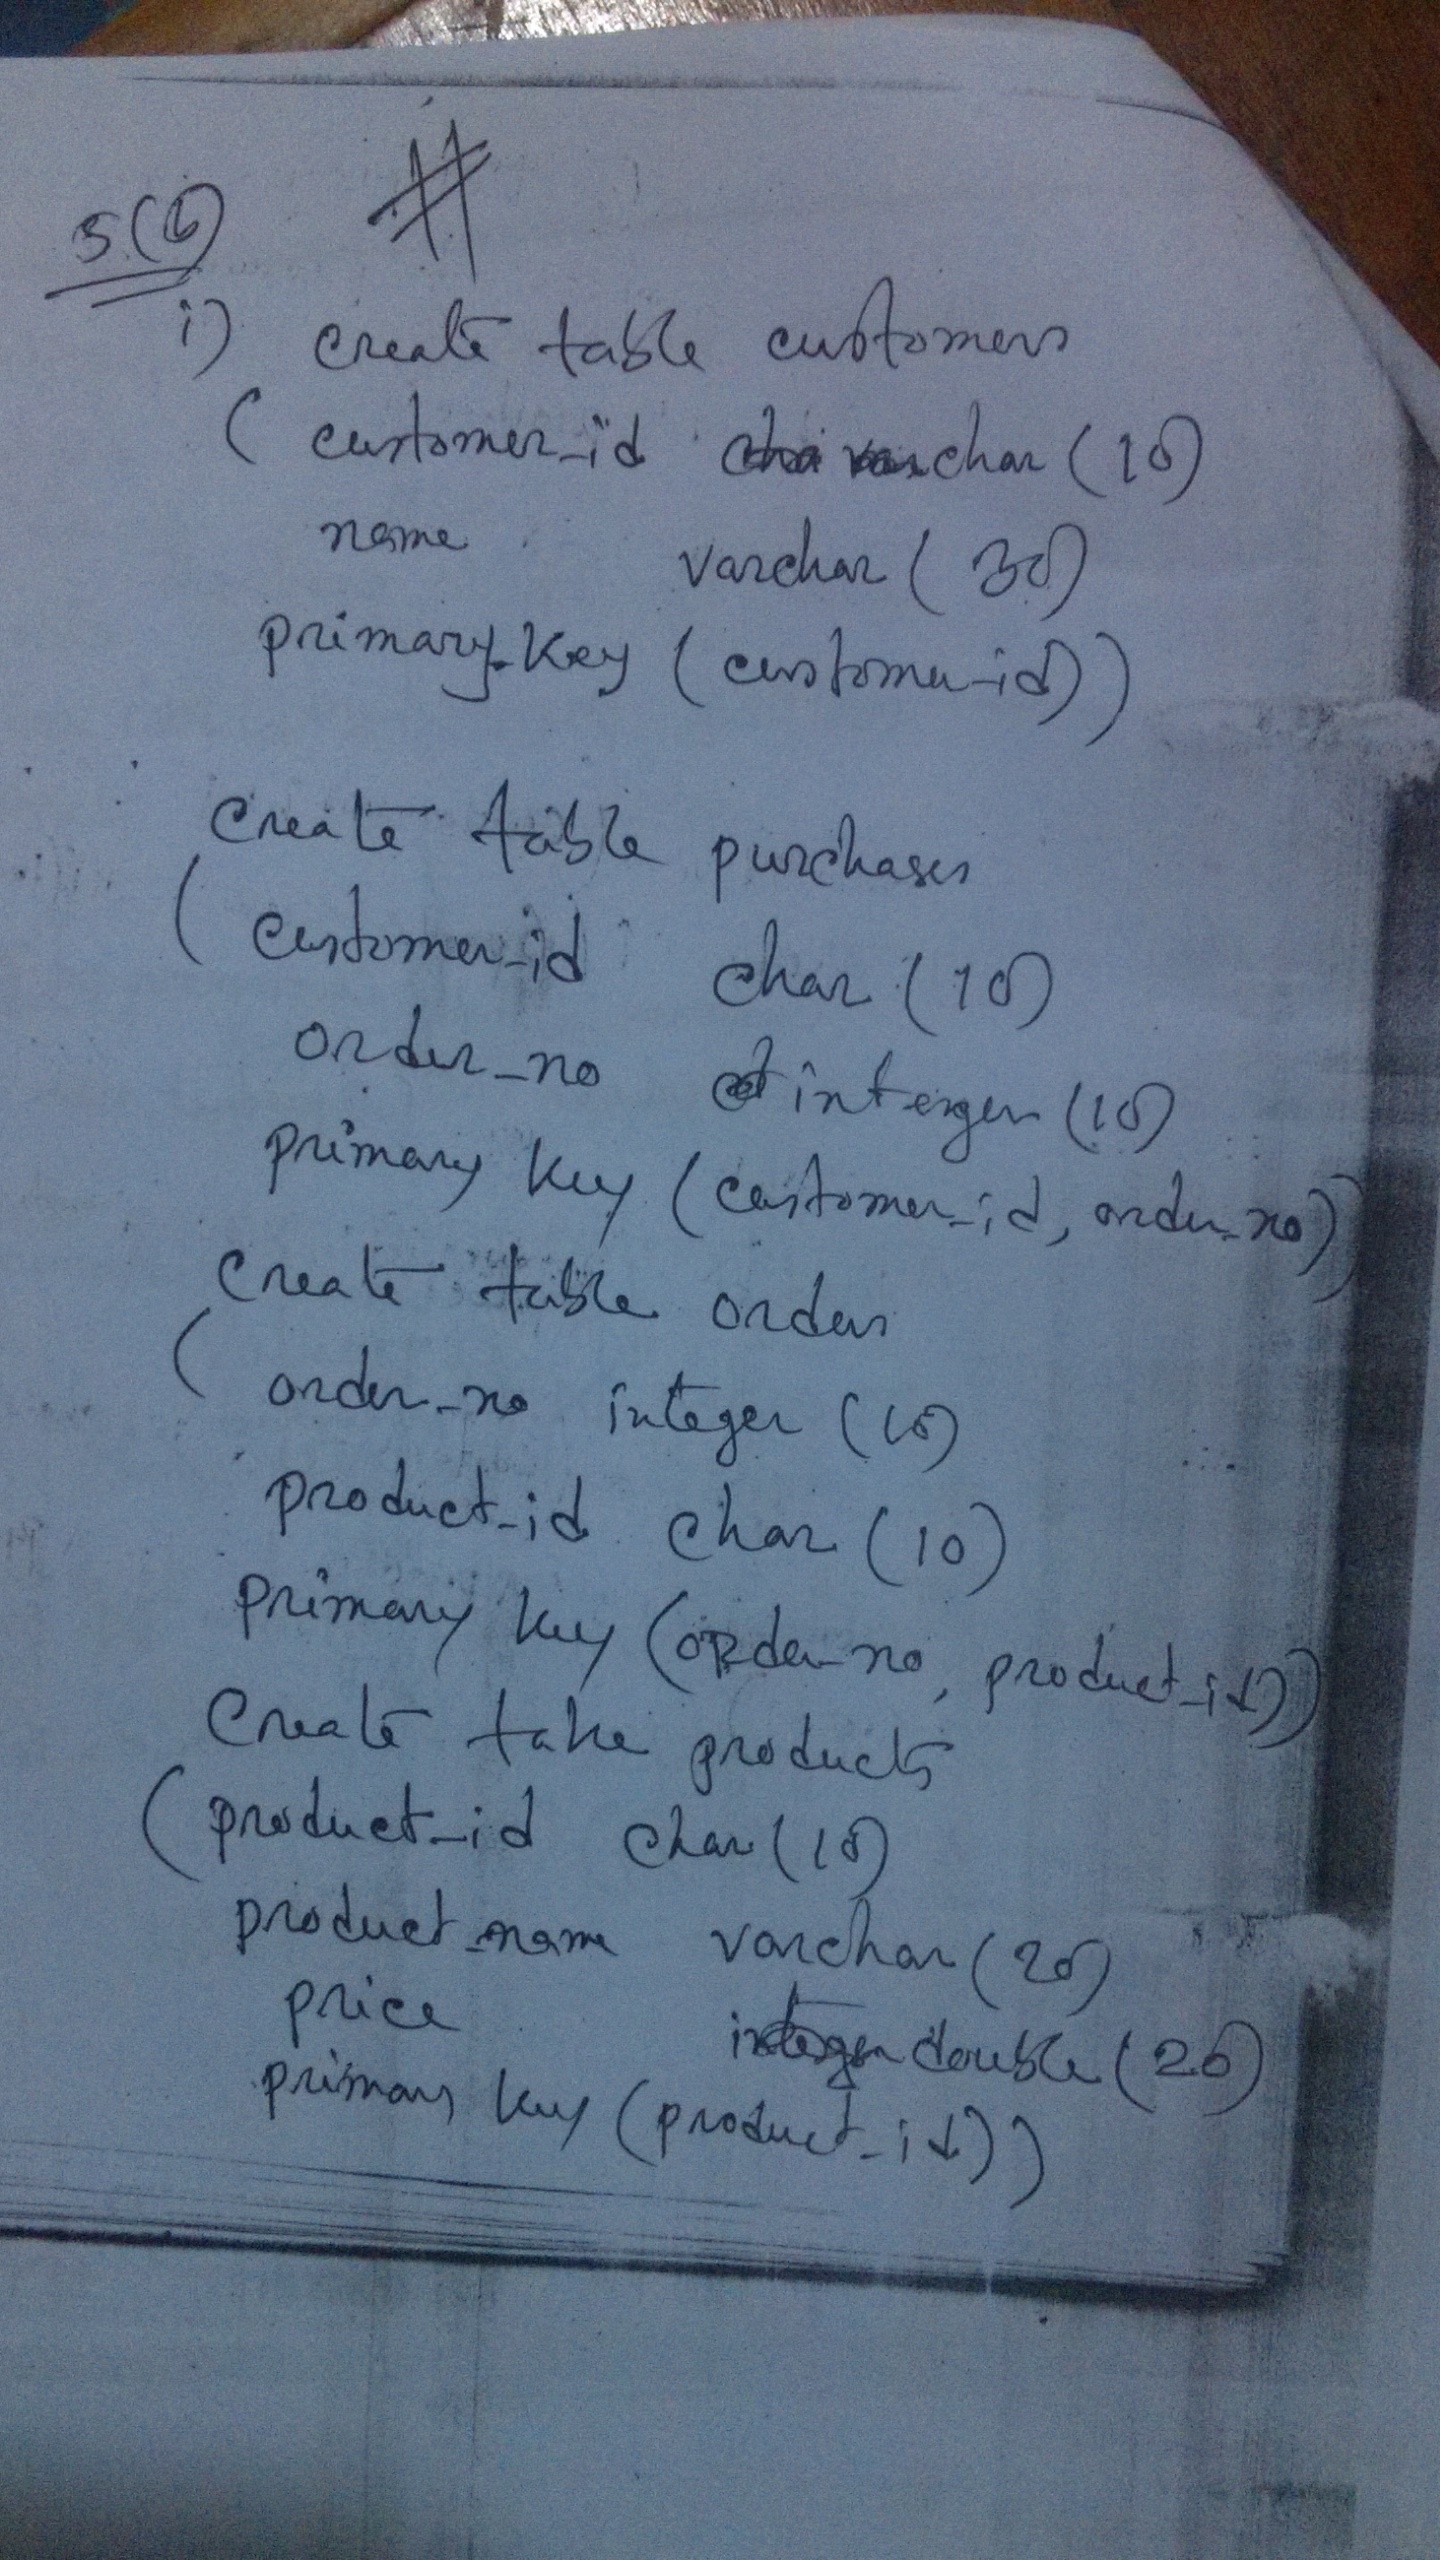 5(b) #
i) create table customers
( customer_id char (10)
name varchar (30)
primary key (customer_id))
create table purchases
( customer_id char (10)
order_no interger (10)
primary key (customer_id, order_no))
create table orders
( order_no integer (10)
product_id char (10)
primary key (order_no, product_id))
create table products
( product_id char (10)
product_name varchar (20)
price double (20)
primary key (product_id))